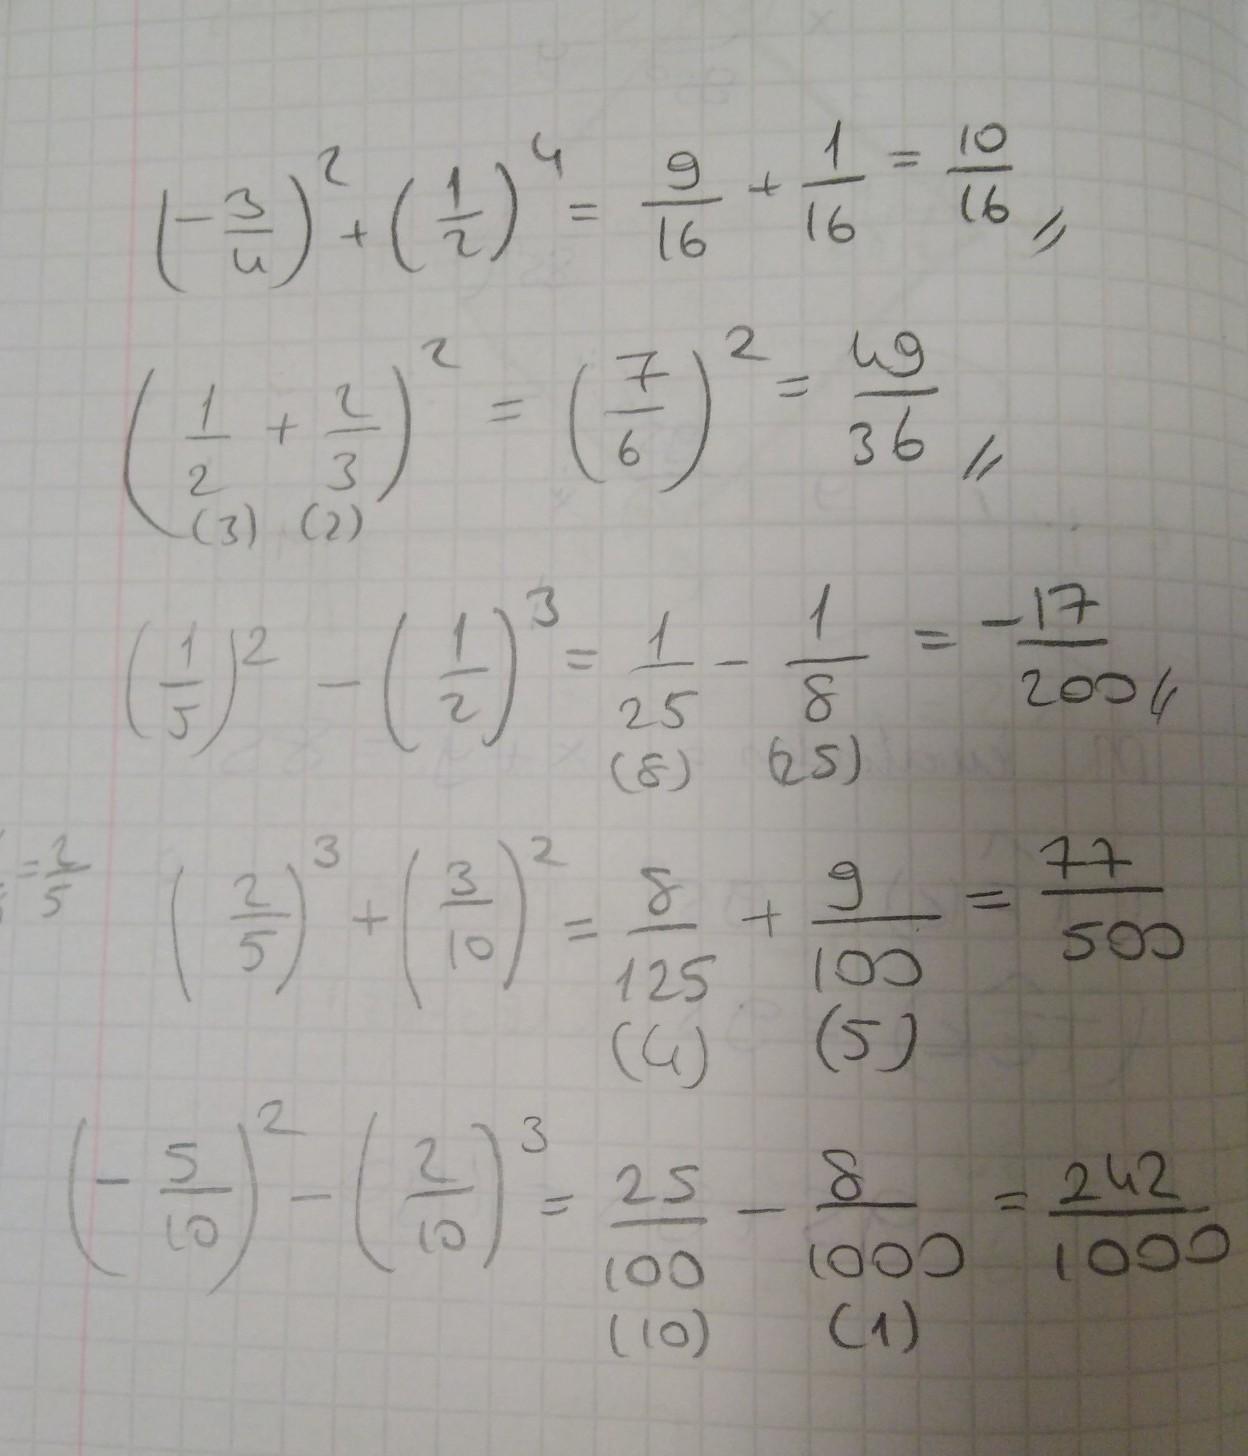 (-3/4)² + (1/2)⁴ = 9/16 + 1/16 = 10/16 //
(1/2 + 2/3)² = (7/6)² = 49/36 //
(3) (2)
(1/5)² - (1/2)³ = 1/25 - 1/8 = -17/200 //
(8) (25)
= 2/5 (2/5)³ + (3/10)² = 8/125 + 9/100 = 77/500
(4) (5)
(-5/10)² - (2/10)³ = 25/100 - 8/1000 = 242/1000
(10) (1)